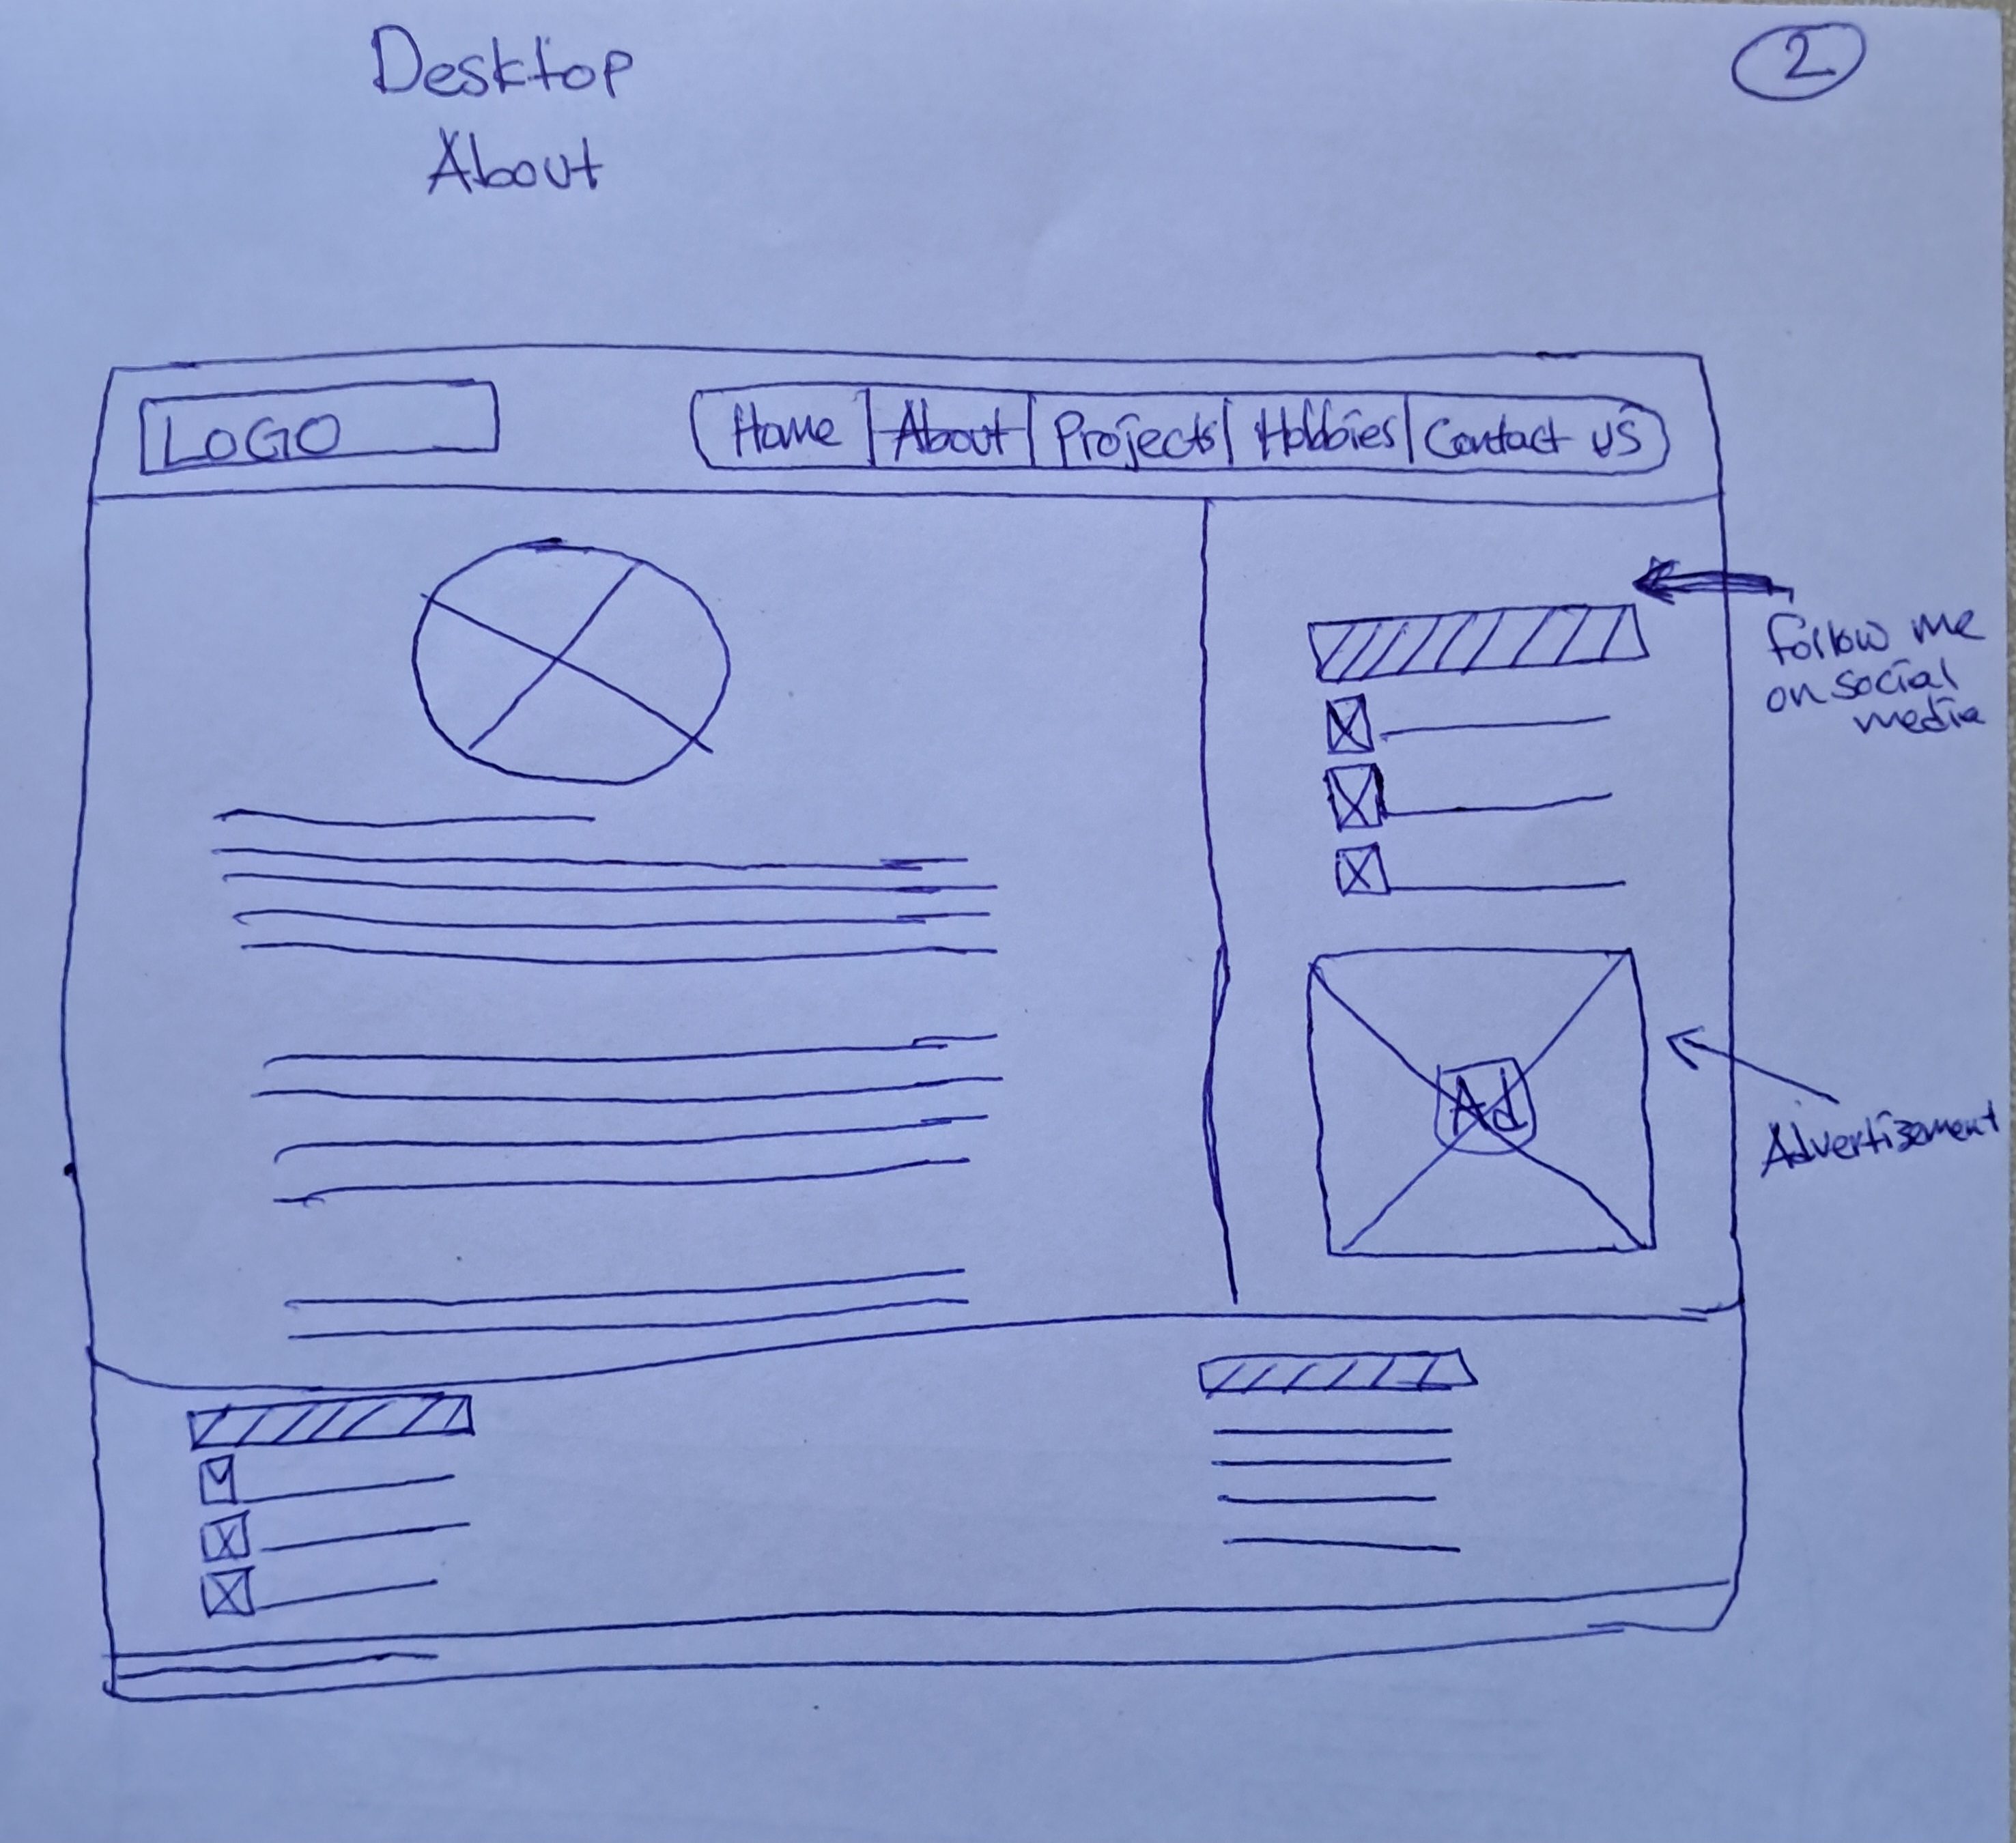 Desktop
About
2
LOGO
Home About Projects Hobbies Contact us
follow me
on social
media
Ad
Advertizement